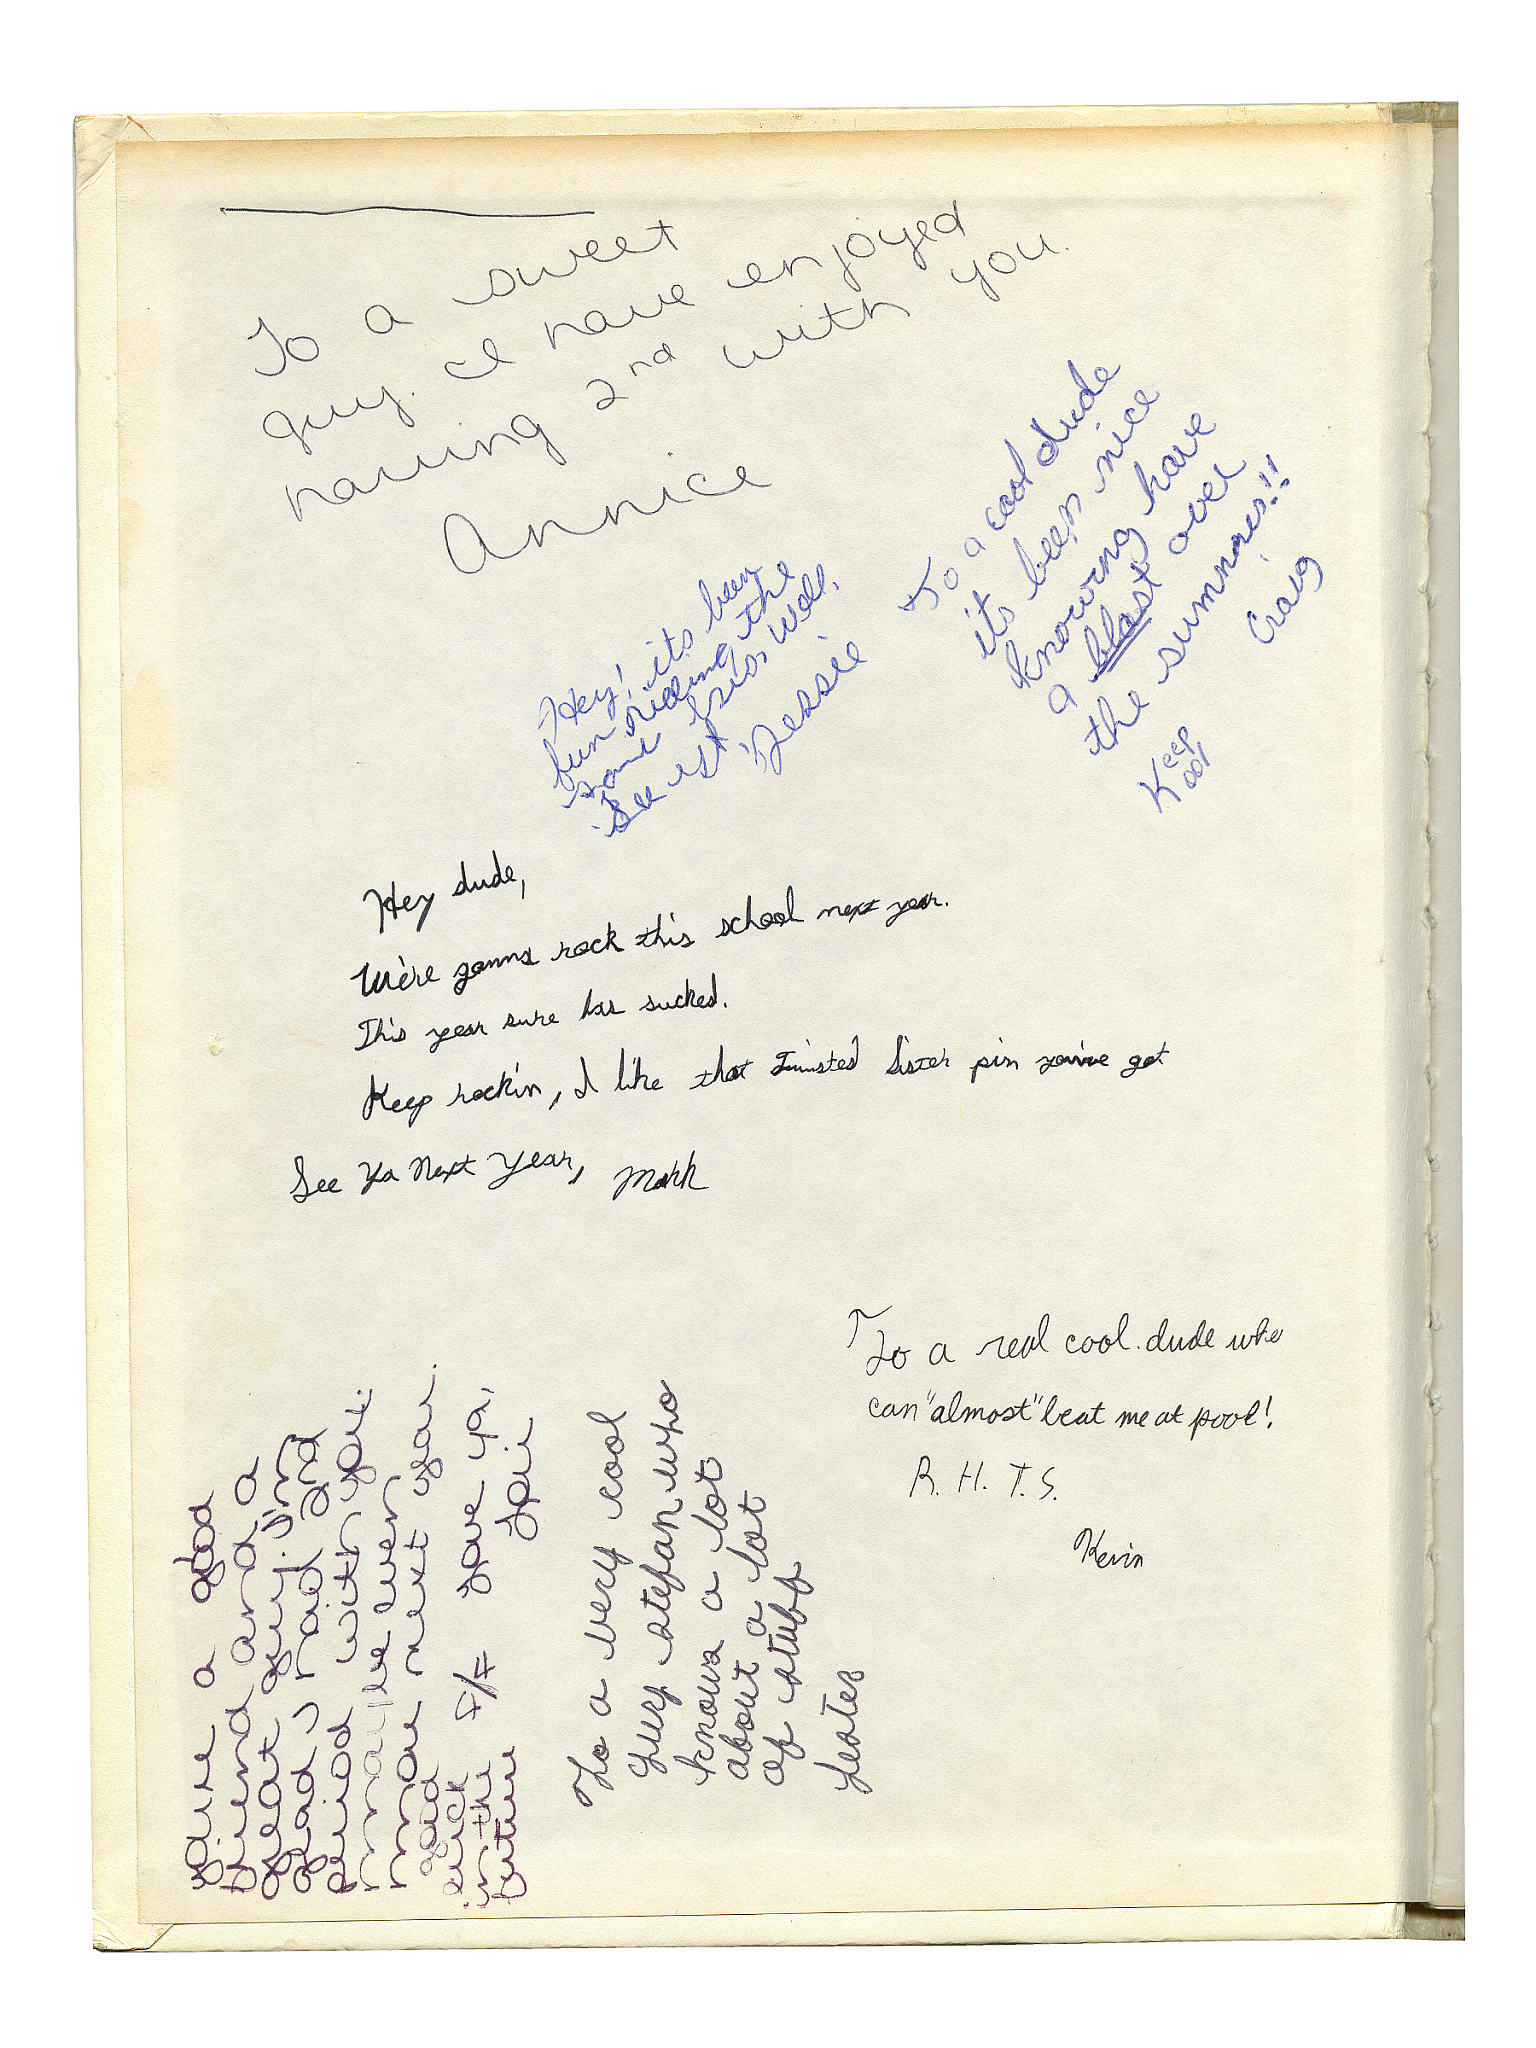 To a sweet
guy. I have enjoyed
having 2nd with you.
Annice
Hey! its been
fun riding the
same bus, well,
See ya
Jessie
To a cool dude
its been nice
knowing have
a blast over
the summer!!
Craig
Keep
ool
Hey dude,
We're gonna rock this school next year.
This year sure has sucked.
Keep rockin, I like that Twisted Sister pin you've got
See Ya Next Year, Mark
To a real cool dude who
can "almost" beat me at pool!
R. H. T. S.
Kevin
your a good
friend and a
great guy. I'm
glad I had 2nd
period with you.
maybe even
more next year.
good
luck F/F Love ya,
in the Lori
future
To a very cool
guy stefan who
knows a lot
about a lot
of stuff